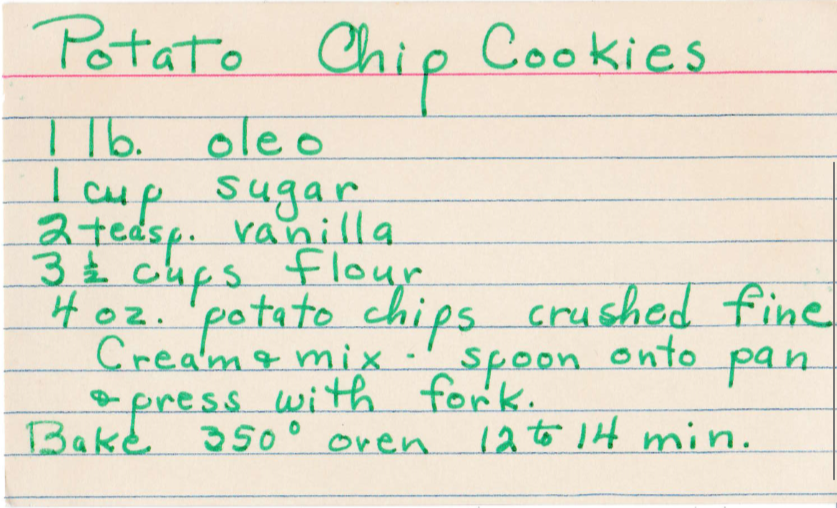 Potato Chip Cookies
1 lb. oleo
1 cup sugar
2 teasp. vanilla
3 ½ cups flour
4 oz. potato chips crushed fine
Cream & mix - spoon onto pan
& press with fork.
Bake 350° oven 12 to 14 min.